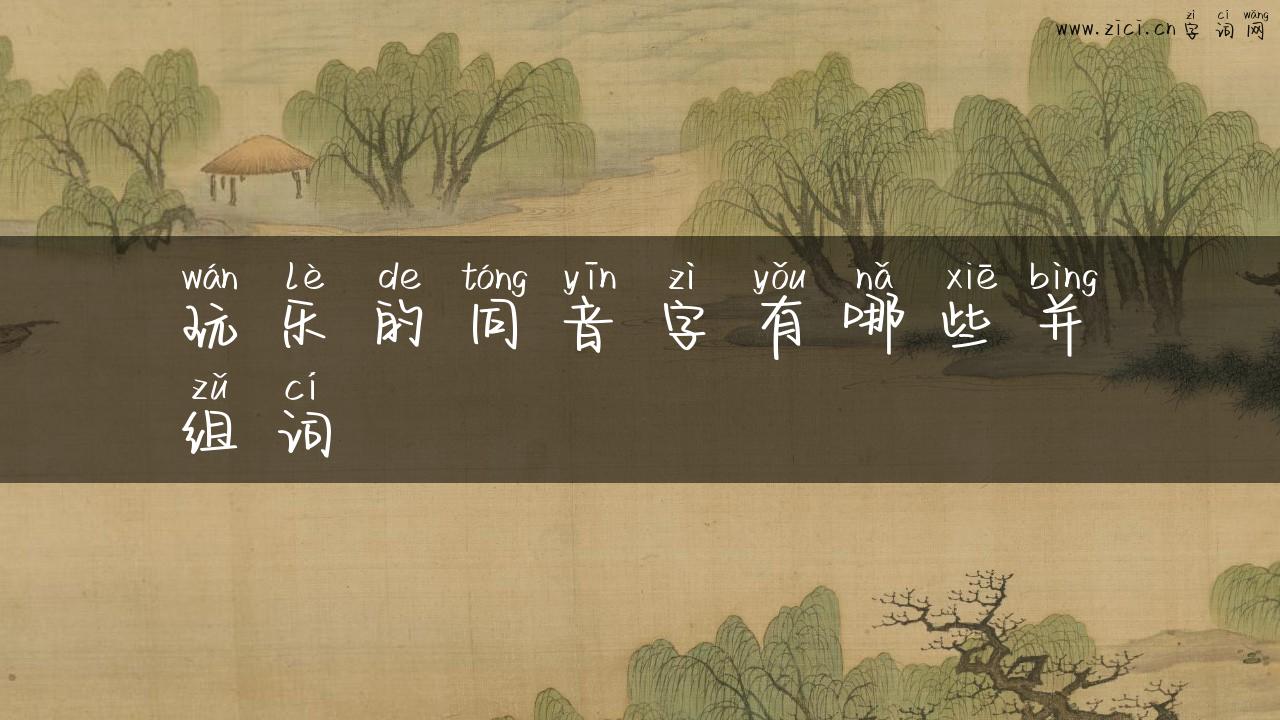 zì cí wǎng
www.zici.cn 字 词 网
wán lè de tóng yīn zì yǒu nǎ xiē bìng
玩 乐 的 同 音 字 有 哪 些 并
zǔ cí
组 词